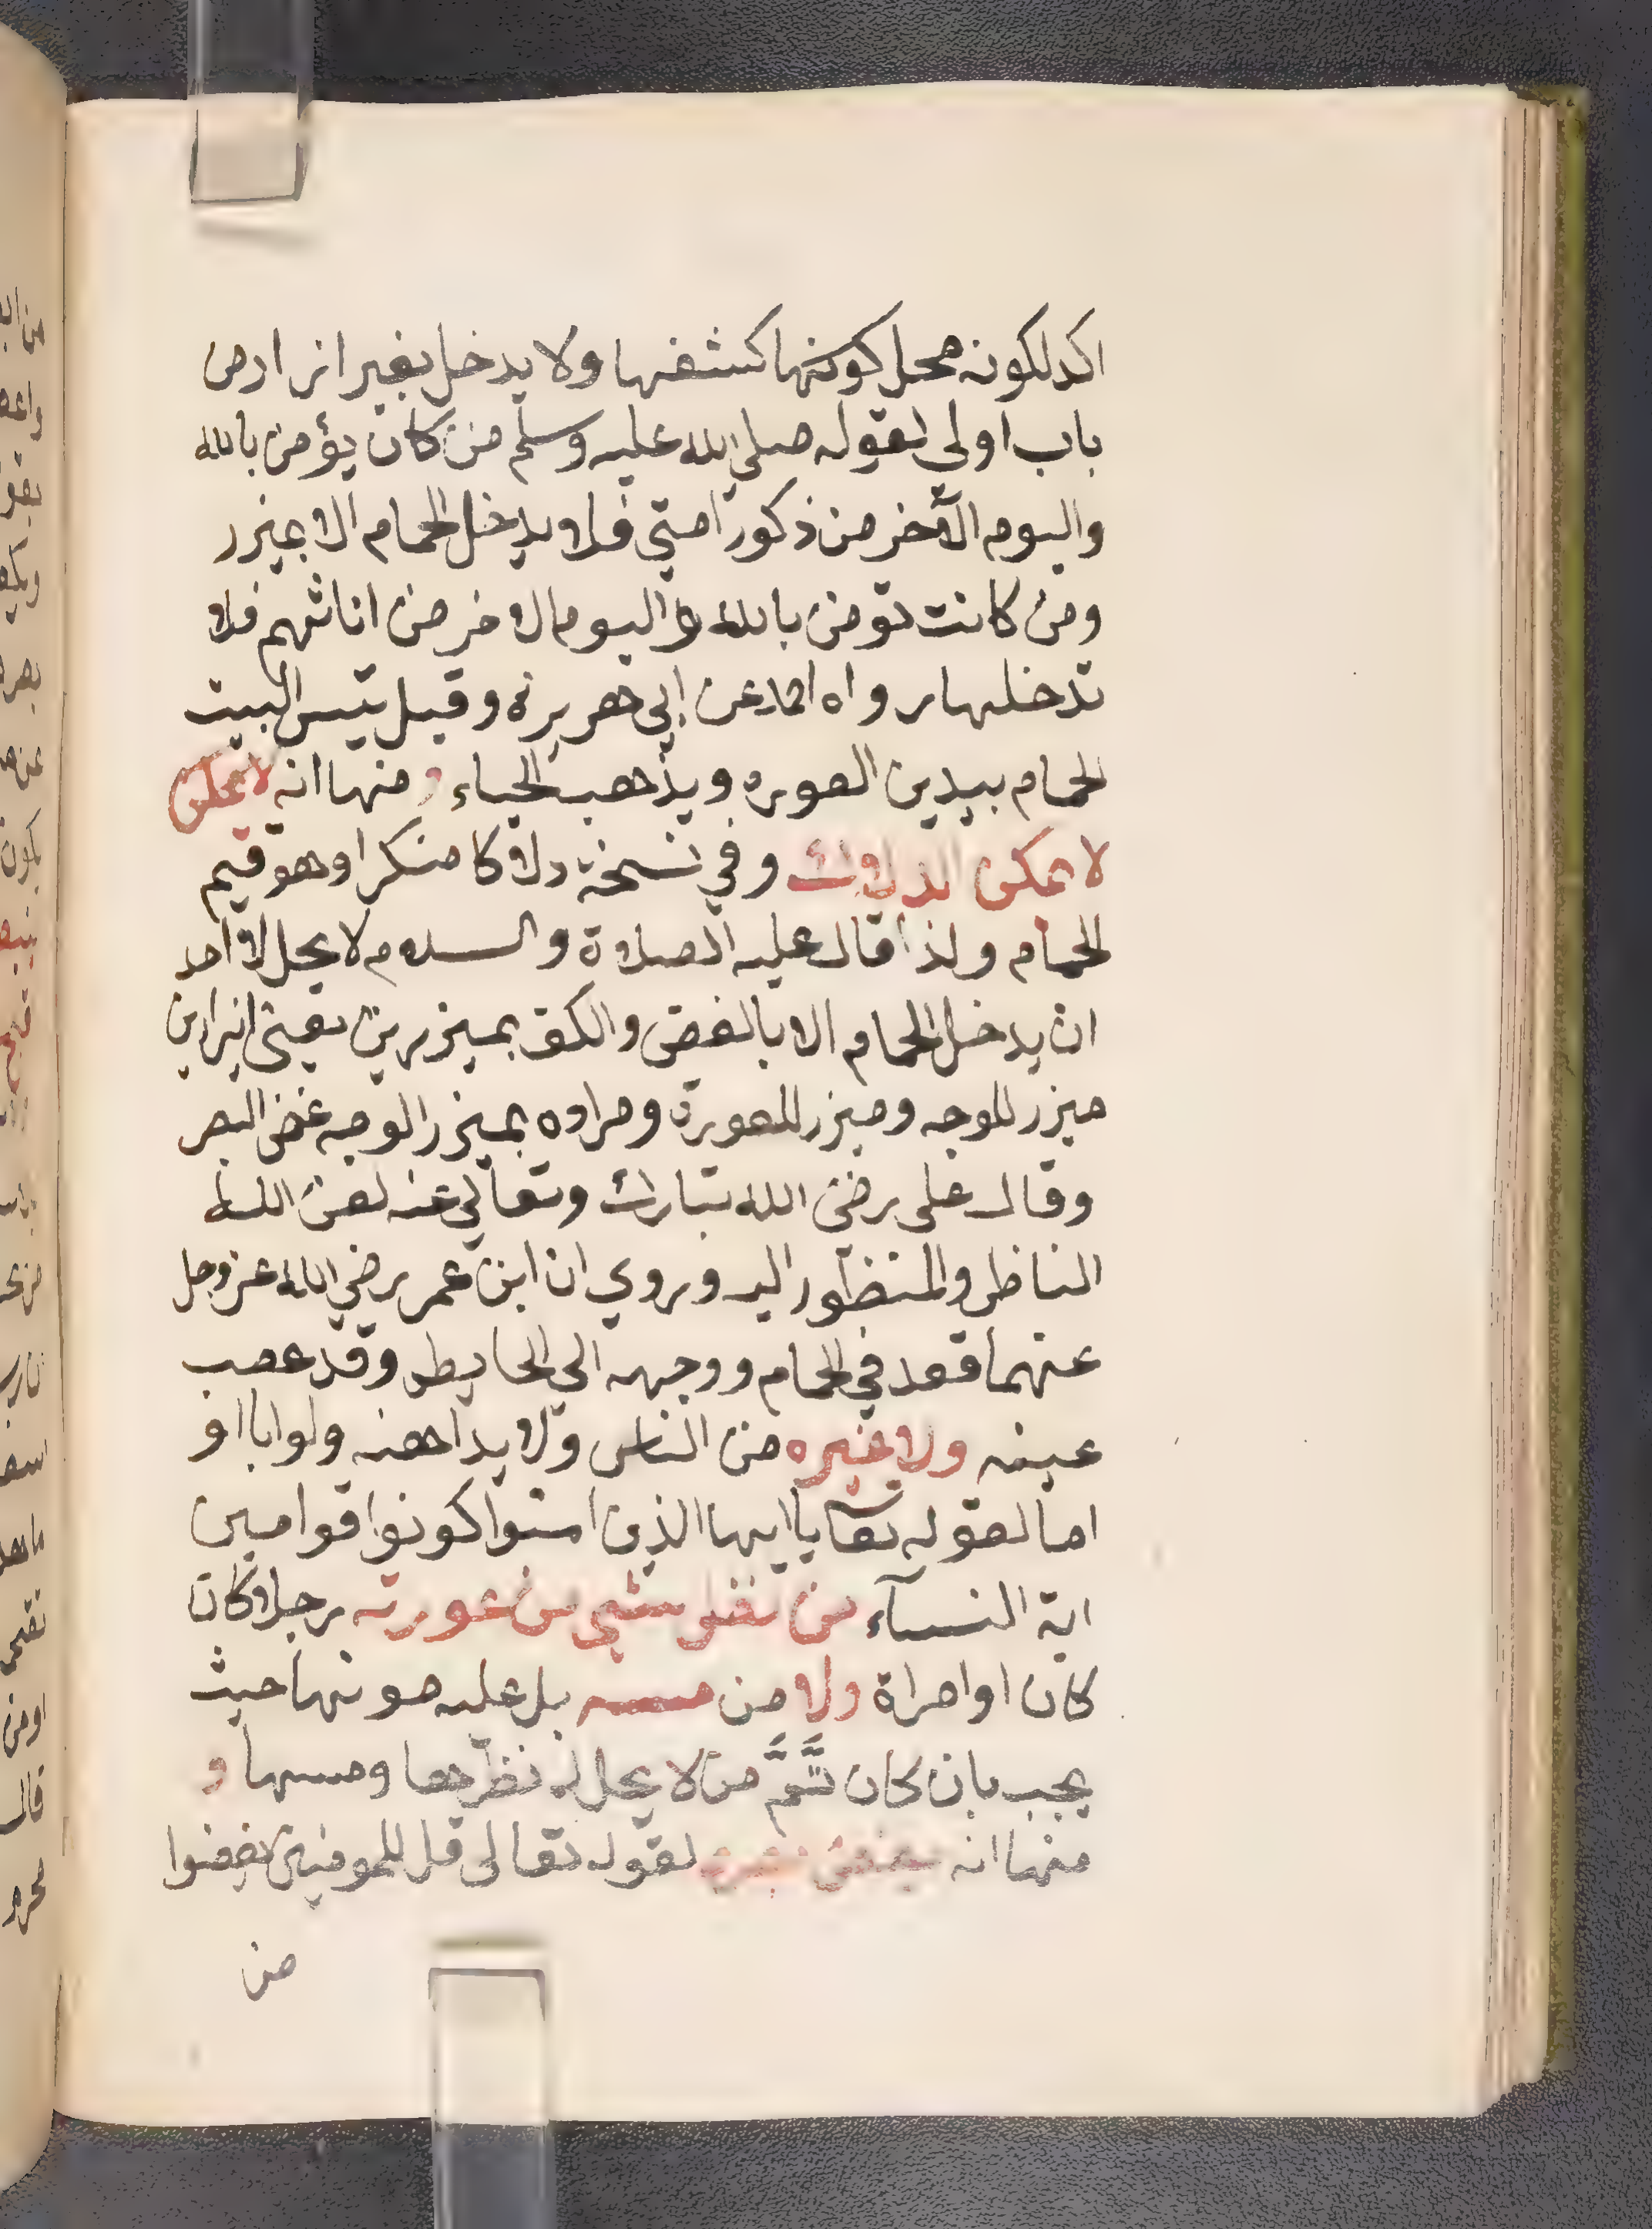 اكد لكونه محل كونها كشفها ولا يدخل بغير ازار من
باب اولي لقوله صلي الله عليه وسلم من كان يؤمن بالله
واليوم الآخر من ذكور امتي فلا يدخل الحمام الا بميزر
ومن كانت تومن بالله واليوم الاخر من اناثهم فلا
تدخلها رواه احمد عن ابي هريرة وقيل بيس البيت
الحمام يبدين العوره ويذهب الحياء و منها انه لا يمكن
لا يمكن الدلاك وفي نسخة دلاكا منكرا وهو قيم
الحمام ولذا قال عليه الصلاة والسلام لا يحل لاحد
ان يدخل الحمام الا بالغض والكف بميزرين يعني ازارين
ميزر للوجه وميزر للعورة ومراده بميزر الوجه غض البصر
وقال علي رضي الله تبارك وتعالي عنه لعن الله
الناظر والمنظور اليه وروي ان ابن عمر رضي الله عز وجل
عنهما قعد في الحمام ووجهه الي الحايط وقد عصب
عينه ولا غيره من الناس ولا يداهنه ولو ابا او
اما لقوله تعا يا ايها الذين امنوا كونوا قوامين
اية النسآء من نظر شي من عورته رجلا كان
كان او امراة ولا من مسه بل عليه صونها حيث
يجب بان كان ثَمَّ من لا يحل له نظرها ومسها و
منها انه يغض بصره لقوله تعالى قل للمومنين يغضوا
من